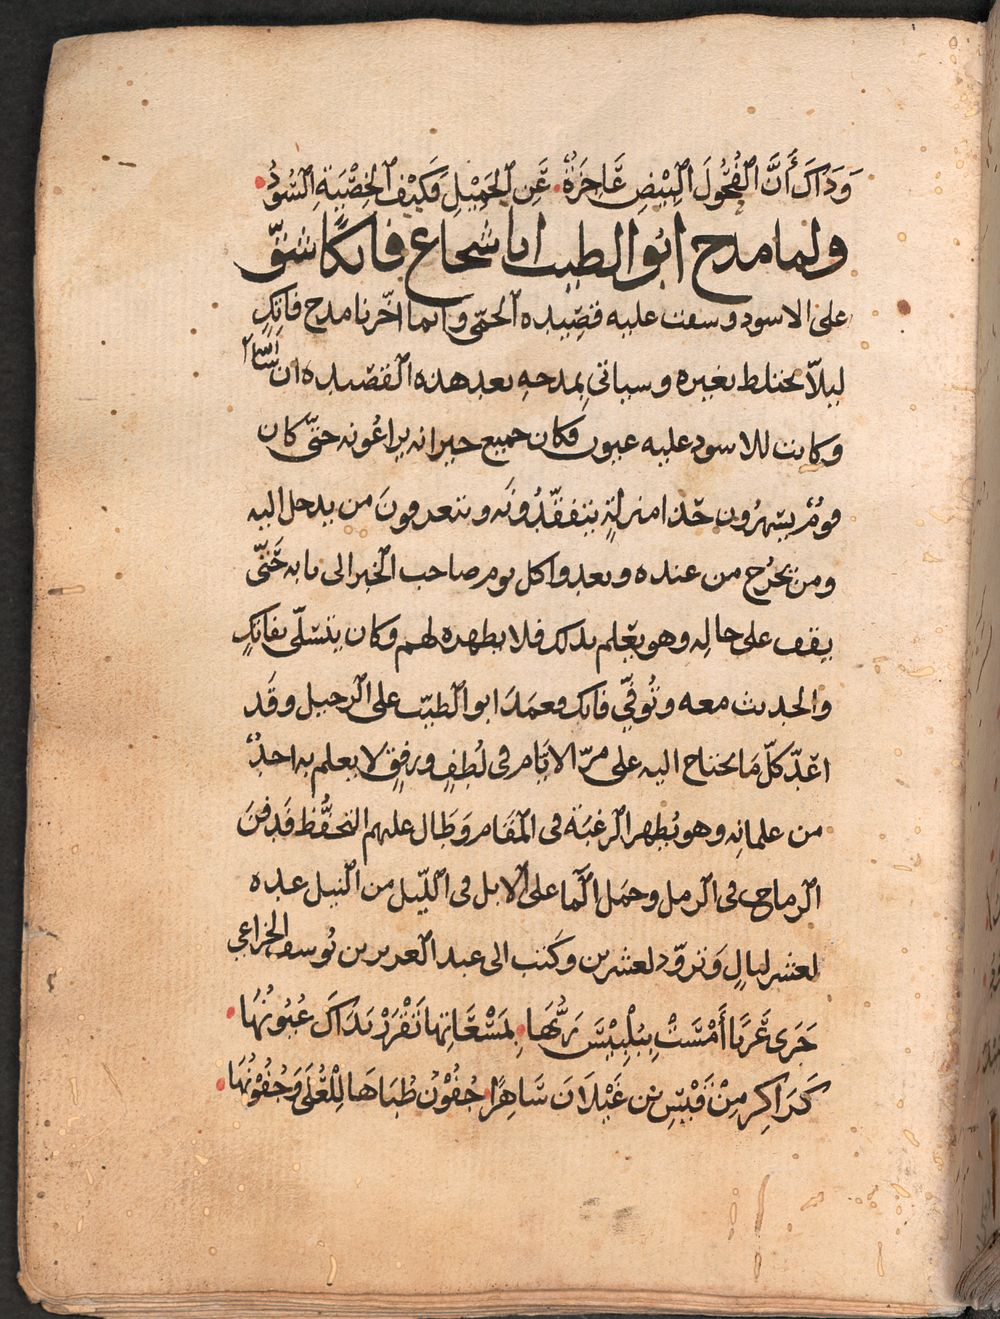 وَذَاكَ أَنَّ الْفُحُولَ الْبِيْضَ عَاجِزَةٌ عَنِ الْجَمِيْلِ فَكَيْفَ الْخِصْيَةُ السُّودُ
ولما مدح ابو الطيب ابا شجاع فاتكا شقّ
على الاسود وسعت عليه قصيده الحمّى وانما اخّرنا مدح فاتكٍ
ليلّا يختلط بغيره وسياتي بمدحهِ بعد هذه القصيده ان شاء الله
وكانت للاسود عليه عيون فكان جميع جيرانه يراعُونه حتّى كان
قومٌ يسهرُون حذا منزلهِ يتفقّدُونَه ويتعرفونَ من يدخل اليه
ومن يخرُج من عنده ويغدوا كل يوم صاحب الخبر الى بابه حَتّى
يقف على حالهِ وهو يعْلم بذلك فلا يظهره لهم وكان يتسلّى بفاتكٍ
والحديث معه وتُوفّي فاتك فعمَدَ ابو الطيّب على الرحيل وقَد
اعَدّ كلّ مَا يحتاج اليه على مرّ الايّام في لُطفٍ ورفقٍ لا يعلم به احدٌ
من غلمانِه وهو يُظهر الرغبَة في المقَام وَطَال عليهم التحفُّظ فَدفنَ
الرماح في الرمل وحمَل المَا على الابل في الليّل من النيل عده
لعشر ليالٍ وَتزوّد لعشرين وكتب الى عبد العزيز بن يُوسف الخزاعي
جَزَى عَرَبًا أَمْسَتْ بِبُلْبِيْسَ رَبُّهَا بِمَسْعَاتِهَا تَقْرَرْ بَذَاكَ عُيُونُهَا
كَرَاكِرَ مِنْ قَيْسِ بْنِ عَيْلَانَ سَاهِرًا جُفُوْنُ ظُبَاهَا لِلْعُلَى وَجُفُوْنُهَا